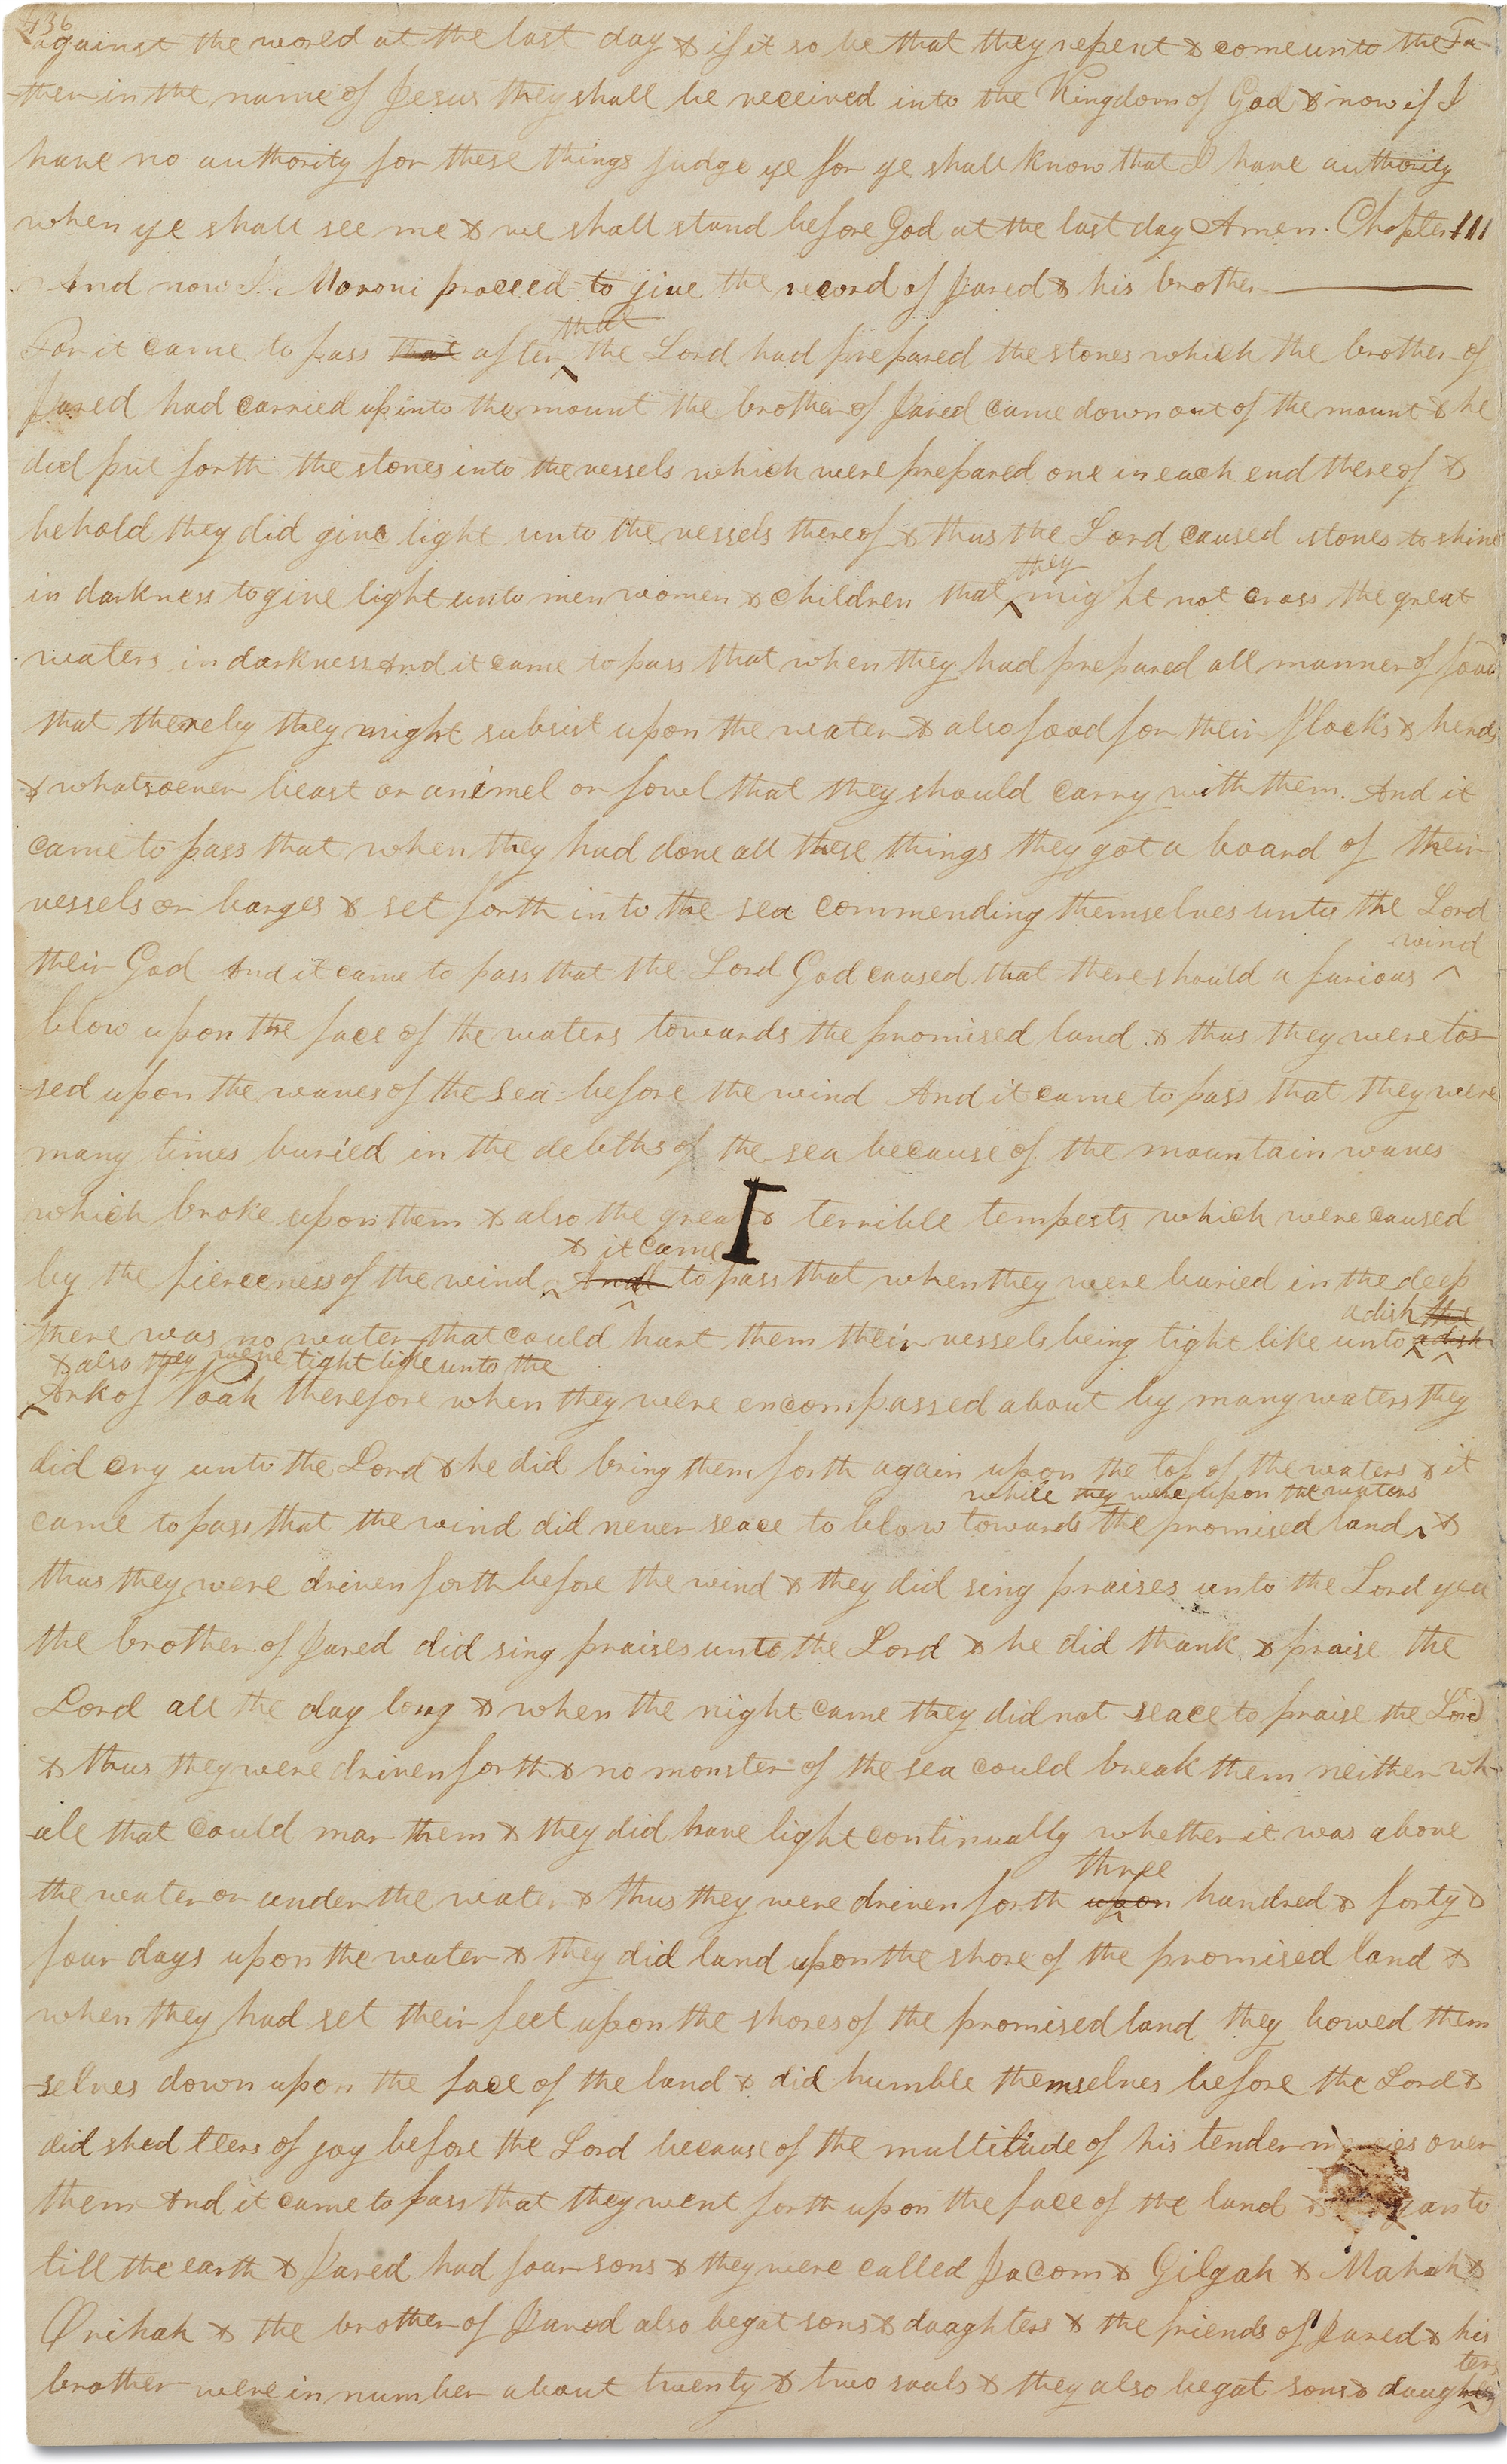 436
against the world at the last day & if it so be that they repent & come unto the Fa-
-ther in the name of Jesus they shall be received into the Kingdom of God & now if I
have no authority for these things judge ye for ye shall know that I have authority
when ye shall see me & we shall stand before God at the last day Amen. Chapter III
And now I Moroni proceed to give the record of Jared & his brother
that
For it came to pass that after the Lord had prepared the stones which the brother of
Jared had carried up into the mount the brother of Jared came down out of the mount & he
did put forth the stones into the vessels which were prepared one in each end thereof &
behold they did give light unto the vessels thereof & thus the Lord caused stones to shine
they
in darkness to give light unto men women & children that might not cross the great
waters in darkness And it came to pass that when they had prepared all manner of food
that thereby they might subsist upon the water & also food for their flocks & herds
& whatsoever beast or animel or fowl that they should carry with them. And it
came to pass that when they had done all these things they got a board of their
vessels or barges & set forth into the sea commending themselves unto the Lord
wind
their God And it came to pass that the Lord God caused that there should a furious
blow upon the face of the waters towards the promised land & thus they were tos-
-sed upon the waves of the sea before the wind And it came to pass that they were
many times buried in the debths of the sea because of the mountain waves
which broke upon them & also the great & terrible tempests which were caused
& it came
by the fierceness of the wind And to pass that when they were buried in the deep
a dish the
there was no water that could hurt them their vessels being tight like unto a dish
& also they were tight like unto the
Ark of Noah therefore when they were encompassed about by many waters they
did cry unto the Lord & he did bring them forth again upon the top of the waters & it
while they were upon the waters
came to pass that the wind did never seace to blow towards the promised land &
thus they were driven forth before the wind & they did sing praises unto the Lord yea
the brother of Jared did sing praises unto the Lord & he did thank & praise the
Lord all the day long & when the night came they did not seace to praise the Lord
& thus they were driven forth & no monster of the sea could break them neither wh-
-ale that could mar them & they did have light continually whether it was above
three
the water or under the water & thus they were driven forth upon hundred & forty &
four days upon the water & they did land upon the shore of the promised land &
when they had set their feet upon the shores of the promised land they bowed them
-selves down upon the face of the land & did humble themselves before the Lord &
did shed teers of joy before the Lord because of the multitude of his tender mercies over
them And it came to pass that they went forth upon the face of the land & to
till the earth & Jared had four sons & they were called Jacom & Gilgah & Mahah &
Orihah & the brother of Jared also begat sons & daughters & the friends of Jared & his
ters
brother were in number about twenty & two souls & they also begat sons & daugh